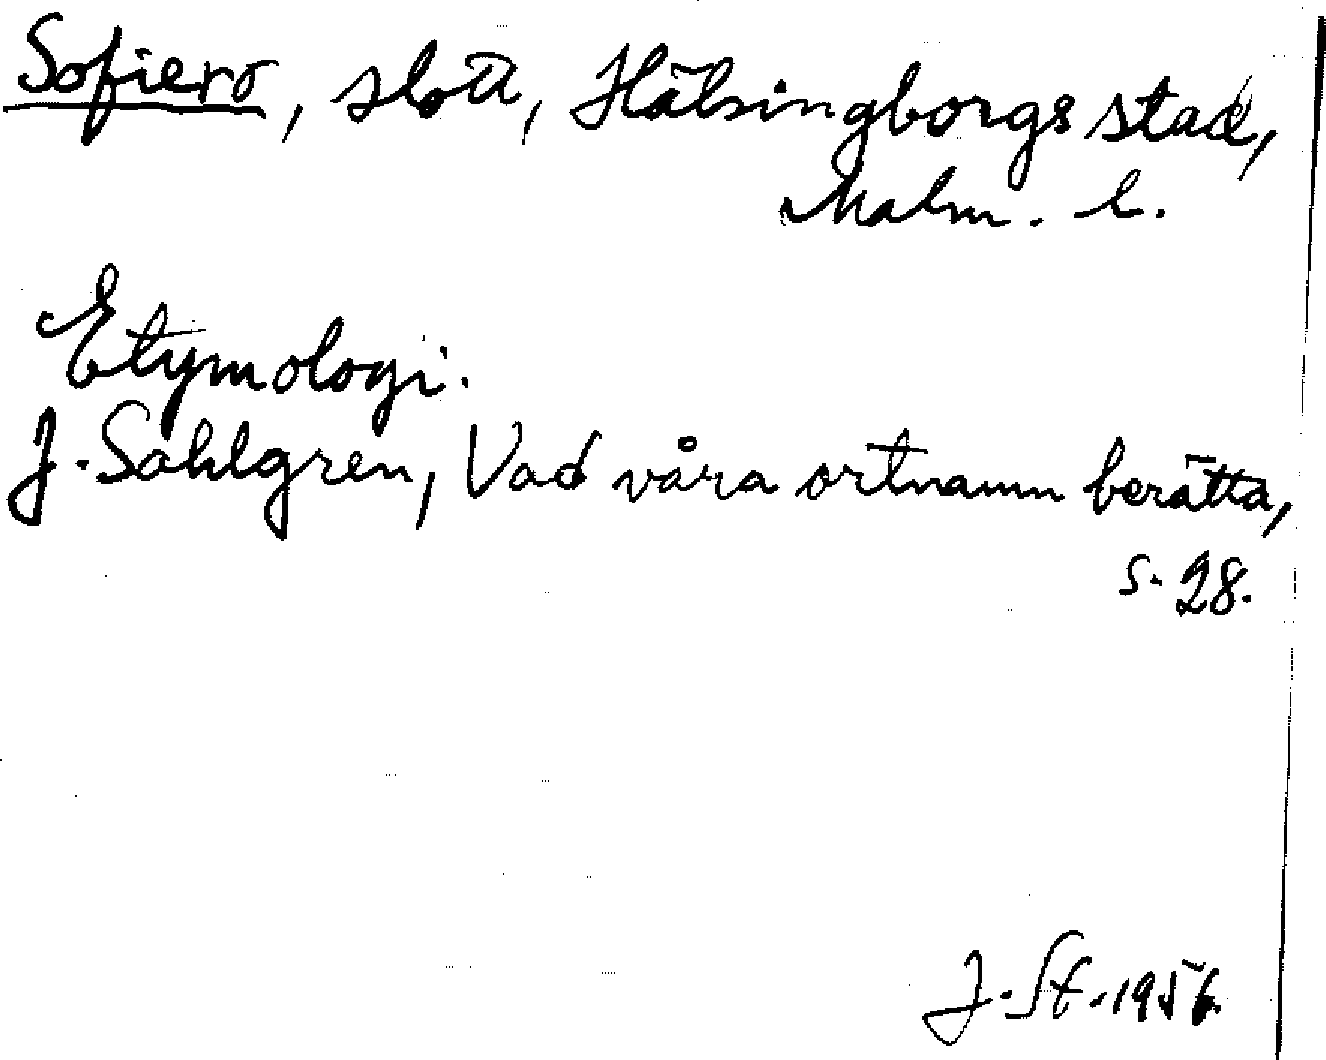 Sofiero, slott, Hälsingborgs stad,
Malm. l.
Etymologi.
J. Sahlgren, Vad våra ortnamn berätta,
s. 28.
J. St. 1956